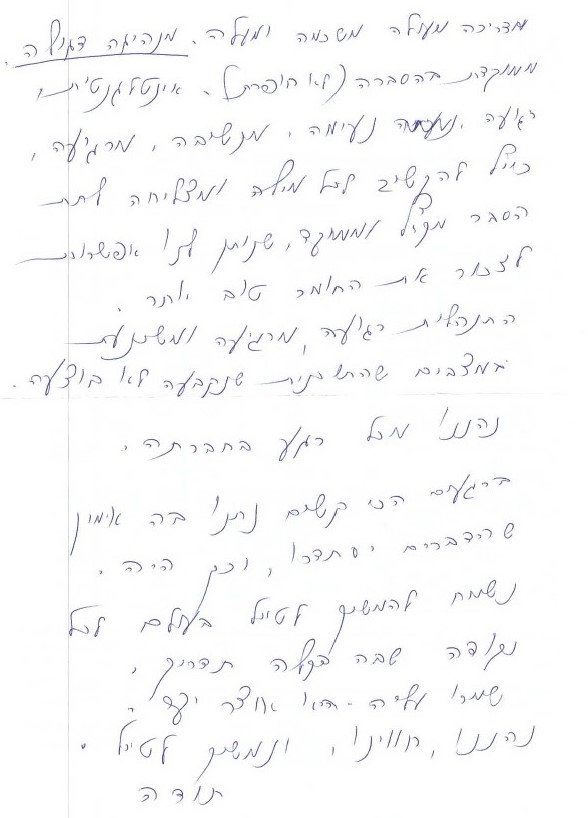 מדריכה מעולה משכמה ומעלה. מנהיגה דגולה.
ממוקדת בהסברה (לא חופרת). אינטלגנטית,
רגועה, נעימה, מקשיבה, מרגיעה,
כייף להקשיב לכל מילה ומצליחה לתת
הסבר מקיף וממוקד, שנותן לנו אפשרות
לצבור את החומר טוב יותר.
התנהלות רגועה, מרגיעה ומשכנעת
במצבים שהתוכנית שנקבעה לא בוצעה.
נהננו מכל רגע בחברתה.
ברגעים הכי קשים נתנו בה אימון
שהדברים יסתדרו, וכך היה.
נשמח להמשיך לטייל בעולם לכל
נקודה שבה תדריך.
שמרו עליה - היא אוצר יקר.
נהננו, חווינו, ונמשיך לטייל.
תודה